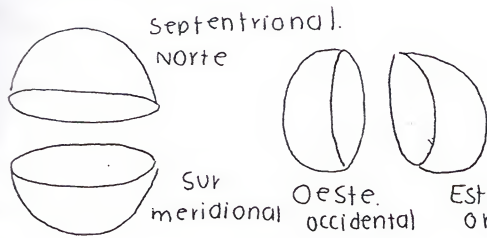 Septentrional.
Norte
Sur
meridional
Oeste.
occidental
Est
or